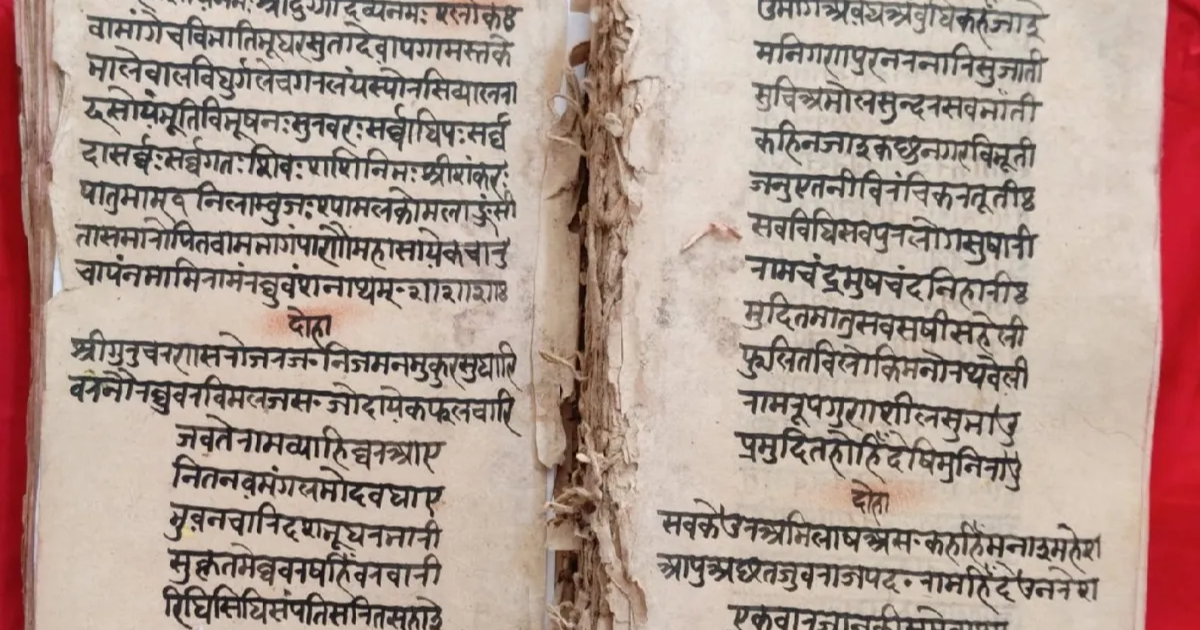 वामांगेचविभातिभूधरसुतादेवापगामस्तके
भालेवालविधुर्गलेचगरलंयस्योरसिव्यालरा
ट्सोयंभूतिविभूषनःसुरवरःसर्व्वाधिपःसर्व्व
दासर्व्वःसर्व्वगतःशिवःशशिनिभःश्रीशंकरः
पातुमाम्‌
तासमारोपितवामभागंपाणौमहासायेकचारु
चापंनमामिरामंरघुवंशनाथम्‌
दोहा
श्रीगुरुचरणसरोजरज॰निजमनमुकुरसुधारि
वरनौरघुवरविमलजस॰जोदायेकफलचारि
जवतेरामव्याहिघरआए
नितनवमंगलमोदवधाए
भुवनचारिदशभूधरभारी
सुकृतमेघवरषहिंवरवारी
रिधिसिधिसंपतिसरितसुहाई
उमगिअवधअंवुधिकहँआई
मनिगणपुरनरनारिसुजाती
सुचिअमोलसुन्दरसवभाँती
कहिनजाइकछुनगरविभूती
जनुएतनीविरंचिकरतूती॥
सवविधिसवपुरलोगसुषारी
रामचंद्रमुषचंदनिहारी॥
मुदितमातुसवसषीसहेली
फुलितविलोकिमनोरथवेली
रामरूपगुणशीलसुभाउ
प्रमुदितहोहिंदेषिमुनिराउ
दोहा
सवकेउरअभिलाषअस॰कहहिंमनाइमहेश
आपुअछतजुवराजपद॰रामहिंदेउनरेश
एकवारजानकी